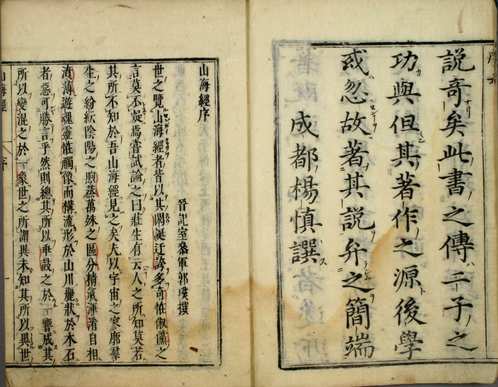 說奇矣此書之傳二子之
功與但其著作之源後學
或忽故著其說弁之簡端
成都楊慎譔
山海經序
晉記室參軍郭璞撰
世之覽山海經者皆以其閎誕迂誇多奇怪俶儻之
言莫不疑焉嘗試論之曰莊生有云人之所知莫若
其所不知於吾山海經見之矣夫以宇宙之寥廓羣
生之紛紜陰陽之煦蒸萬殊之區分精氣渾淆自相
濆薄遊魂靈怪觸像而構流形於山川麗狀於木石
者惡可勝言乎然則總其所以乖鼓之於一響成其
所以變混之於一象世之所謂異未知其所以異世
山海經 序